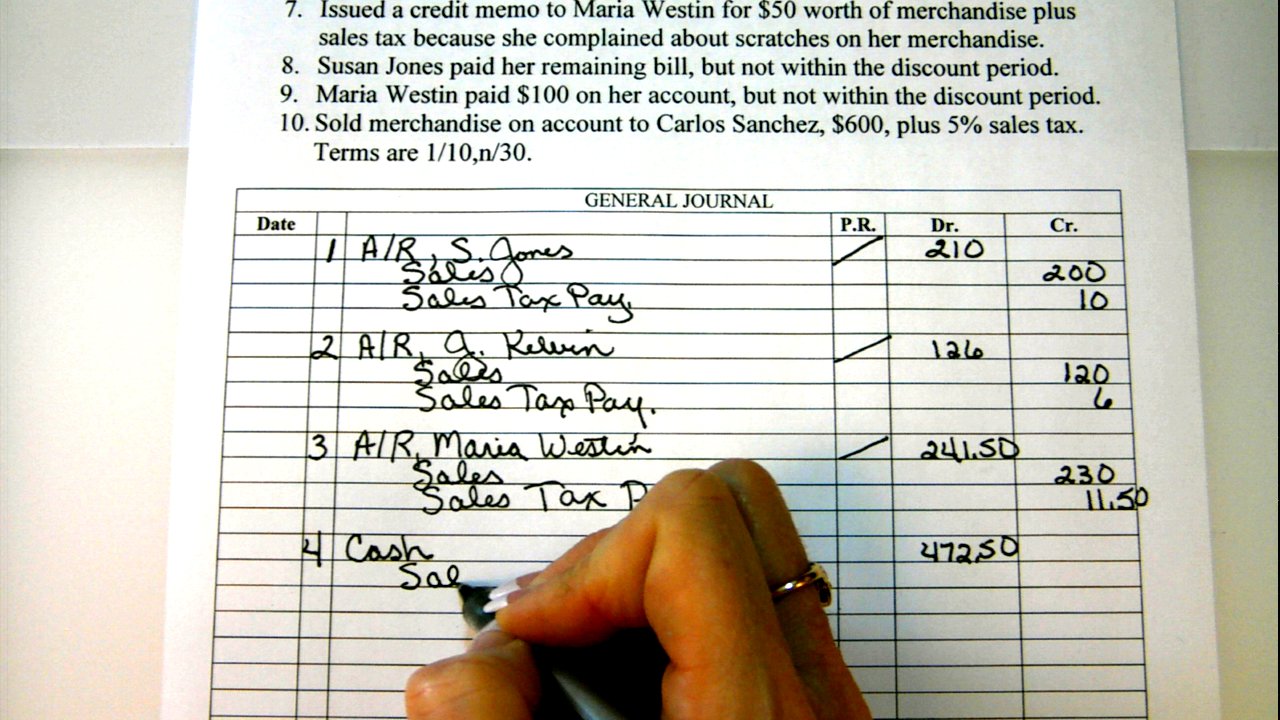 7. Issued a credit memo to Maria Westin for $50 worth of merchandise plus
sales tax because she complained about scratches on her merchandise.
8. Susan Jones paid her remaining bill, but not within the discount period.
9. Maria Westin paid $100 on her account, but not within the discount period.
10. Sold merchandise on account to Carlos Sanchez, $600, plus 5% sales tax.
Terms are 1/10,n/30.
GENERAL JOURNAL
Date P.R. Dr. Cr.
1 A/R, S. Jones 210
Sales 200
Sales Tax Pay. 10
2 A/R, J. Kelvin 126
Sales 120
Sales Tax Pay. 6
3 A/R, Maria Westin 241.50
Sales 230
Sales Tax P 11.50
4 Cash 472.50
Sal